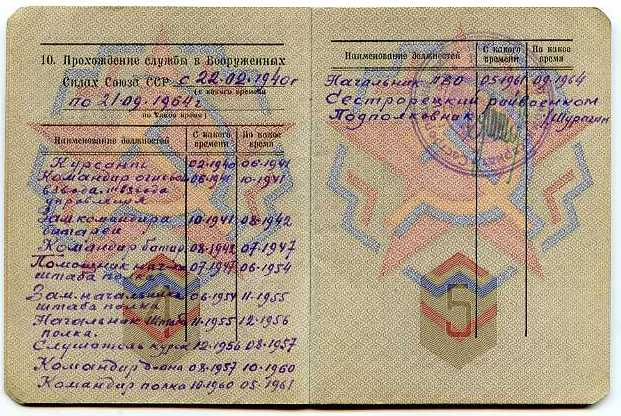 10. Прохождение службы в Вооруженных
Силах Союза ССР с 22.02.1940г
(с какого времени
по 21.09.1964г
по какое время)
Наименование должностей С какого времени По какое время
Курсант 02-1940 06-1941
Командир огневого 06-1941 10-1941
взвода, взвода
управления
Зам. командира 10-1941 08-1942
батареи
Командир батар 08-1942 07-1947
Помощник начал 07-1947 06-1954
штаба полка
Зам. начальника 06-1954 11-1955
штаба полка
Начальник штаба 11-1955 12-1956
полка.
Слушатель курсов 12-1956 08-1957
Командир д-она 08-1957 10-1960
Командир полка 10-1960 05-1961
4
Наименование должностей С какого времени По какое время
Начальник ПВО 05-1961 09-1964
Сестрорецкий райвоенком
Подполковник Шурагин
5